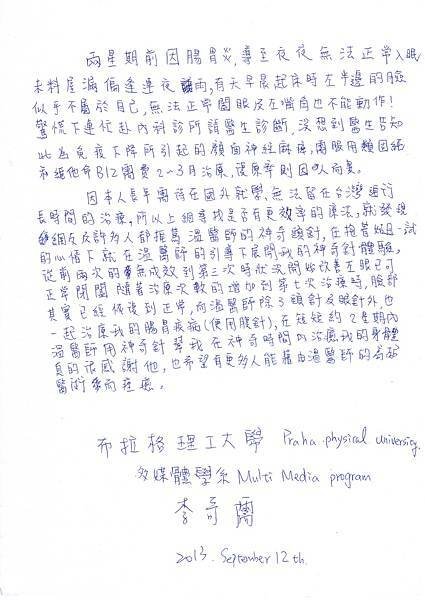 兩星期前因腸胃炎,導至夜夜無法正常入眠
未料屋漏偏逢連夜雨,有天早晨起床時左半邊的臉
似乎不屬於自己,無法正常閉眼及左嘴角也不能動作!
驚慌下連忙赴內科診所請醫生診斷,沒想到醫生告知
此為免疫下降所引起的顏面神經麻痺,需服用類固醇
維他命B12需費2~3月治療,復原率則因人而異。
因本人長年需待在國外就學,無法留在台灣進行
長時間的治療,所以上網尋找是否有更效率的療法,就發現
網友及許多人都推薦溫醫師的神奇頭針,在抱著姑且一試
的心情下就在溫醫師的引導下展開我的神奇針體驗,
從前兩次的無成效到第三次時狀況開始改善左眼已可
正常閉闔 隨著治療次數的增加到第七次治療時,臉部
其實已經恢復到正常,而溫醫師除了頭針及眼針外,也
一起治療我的腸胃疾病(使用腹針),在短短約2星期內
溫醫師用神奇針幫我在神奇時間內治療我的身體
真的很感謝他,也希望有更多人能藉由溫醫師的高超
醫術來而痊癒。
布拉格理工大學 Praha physical university.
多媒體學系 Multi Media program
李奇
2013. September 12th.